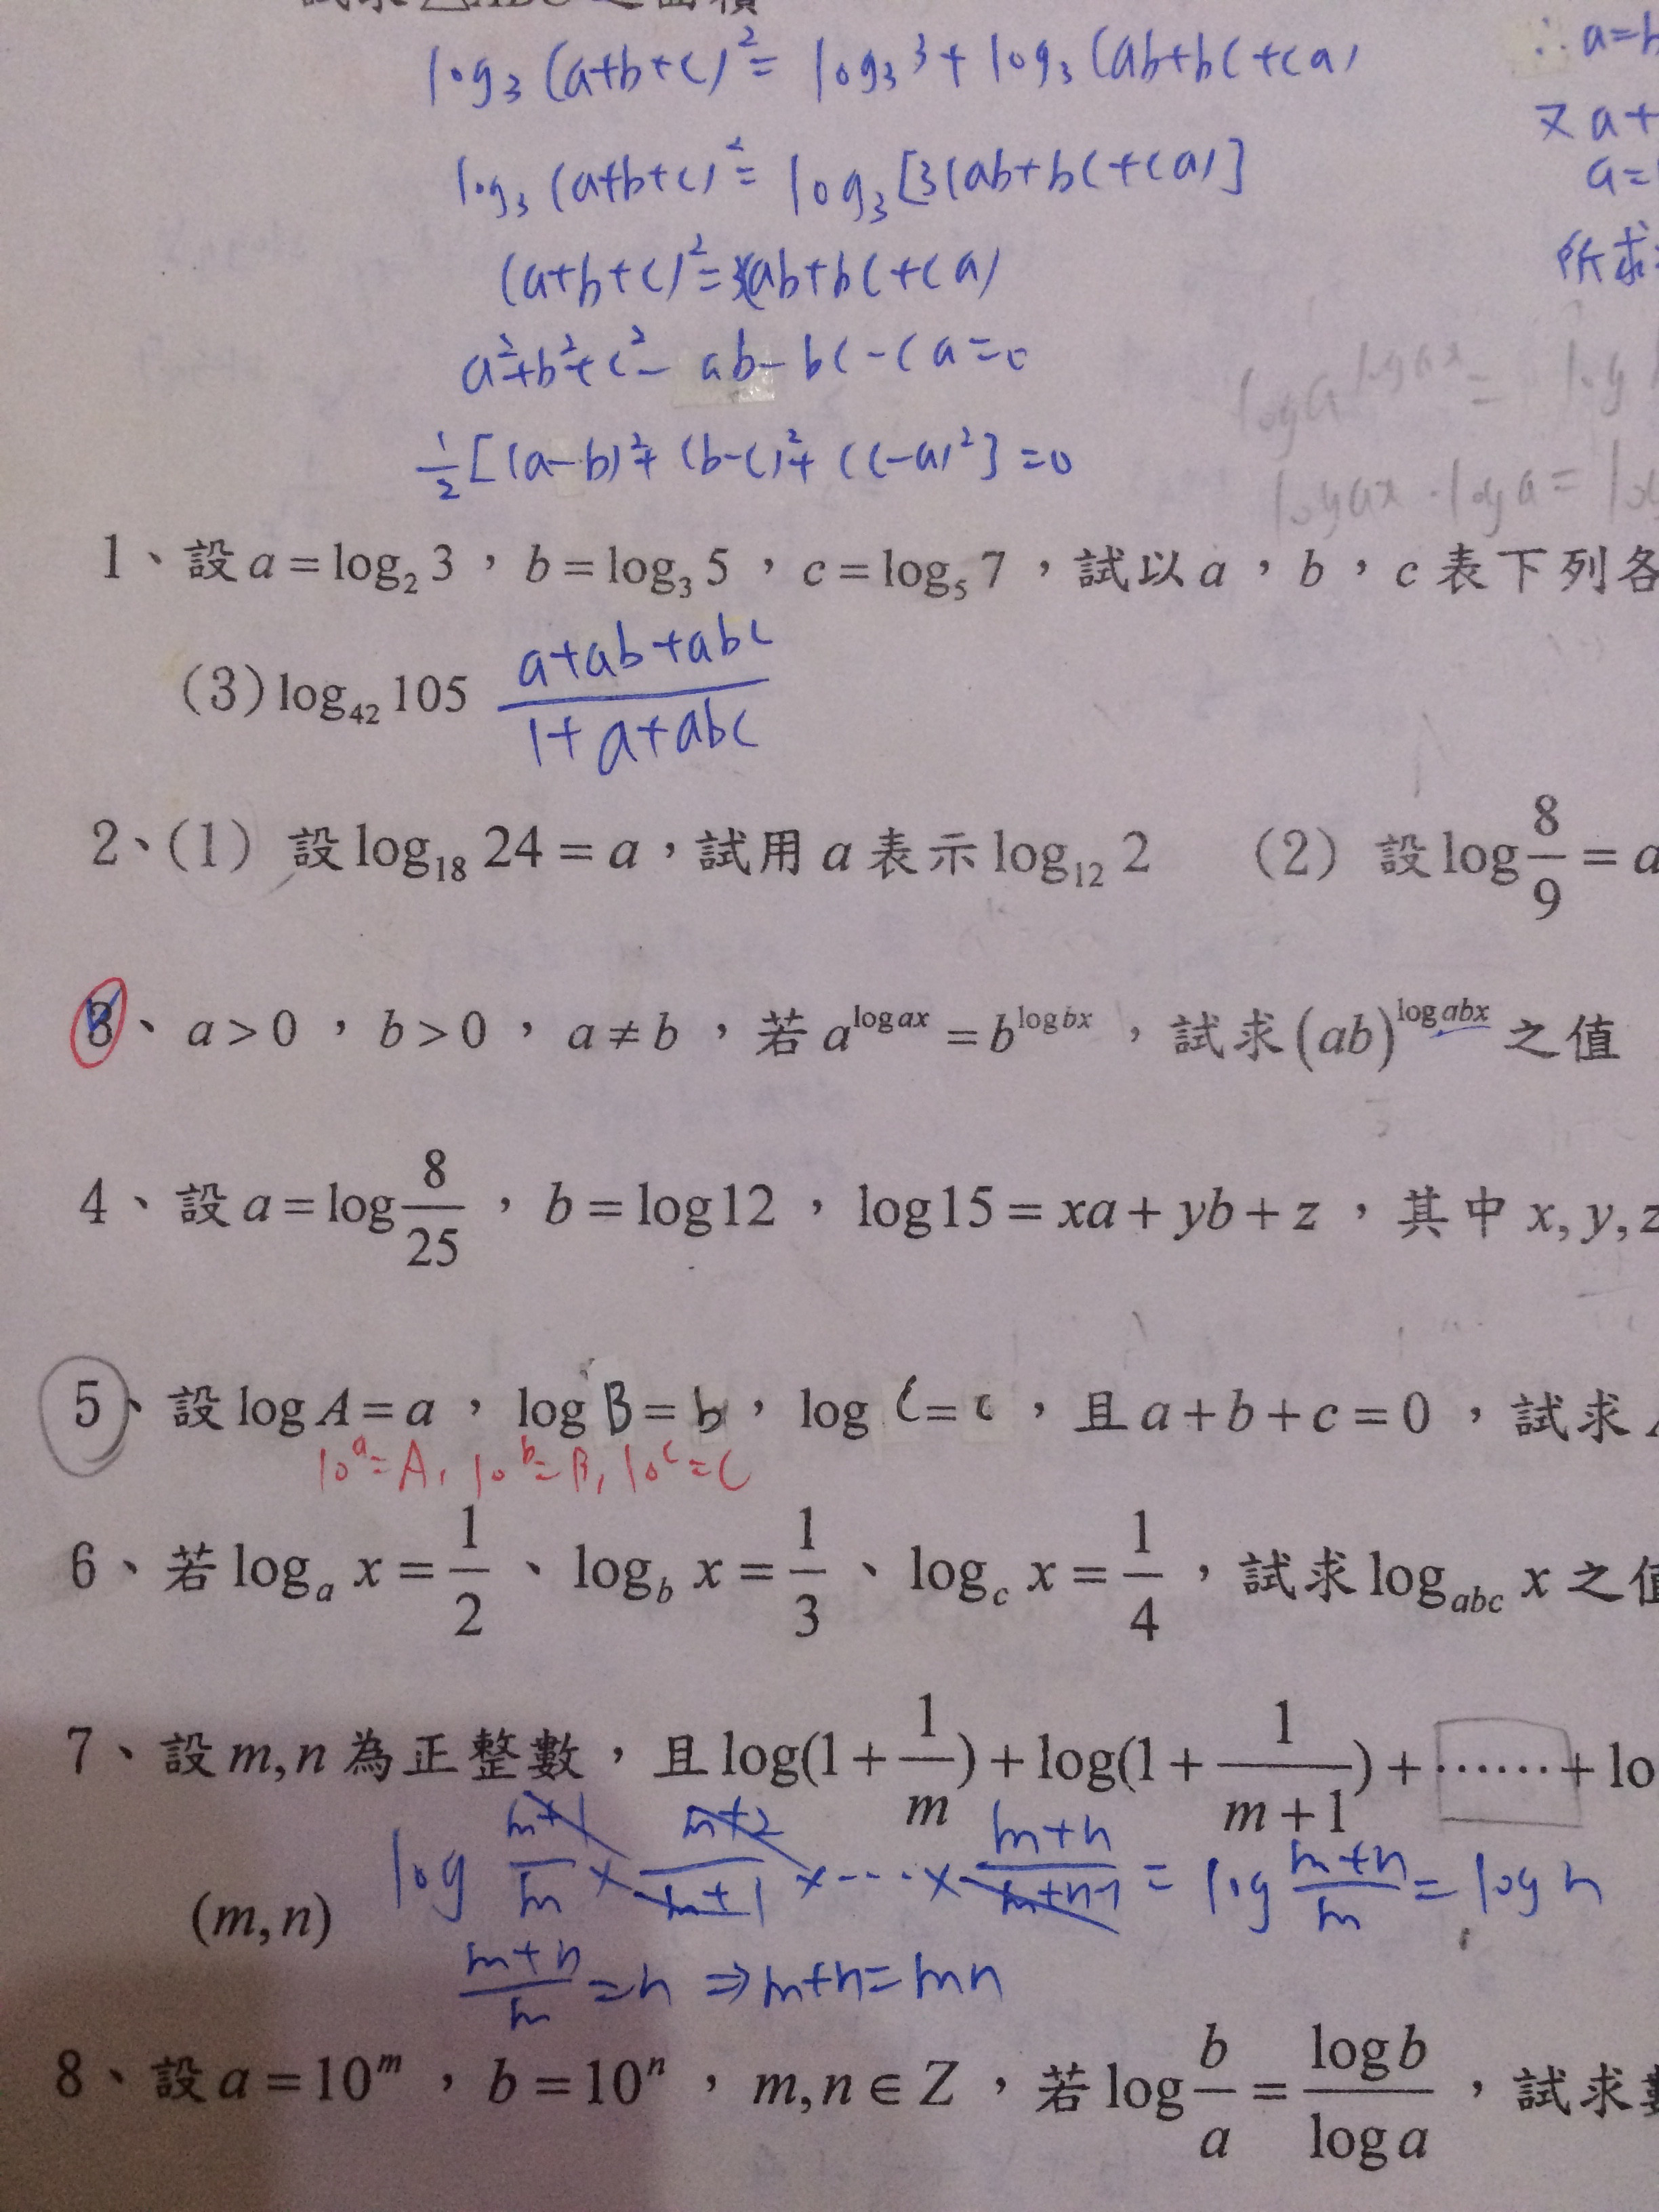 log₃(a+b+c)² = log₃3 + log₃(ab+bc+ca)
∴ a=b
log₃(a+b+c)² = log₃[3(ab+bc+ca)]
又 a+
a=
(a+b+c)² = 3(ab+bc+ca)
所求
a²+b²+c²-ab-bc-ca=0
log a^{log ax} = log
½[(a-b)²+(b-c)²+(c-a)²]=0
log ax · log a = log
1、設 a = log₂ 3,b = log₃ 5,c = log₅ 7,試以 a,b,c 表下列各
(3) log₄₂ 105 (a+ab+abc)/(1+a+abc)
2、(1) 設 log₁₈ 24 = a,試用 a 表示 log₁₂ 2 (2) 設 log 8/9 = a
3、a > 0,b > 0,a ≠ b,若 a^{log ax} = b^{log bx},試求 (ab)^{log abx} 之值
4、設 a = log 8/25,b = log12,log15 = xa + yb + z,其中 x, y, z
5、設 log A = a,log B = b,log C = c,且 a + b + c = 0,試求
10^a = A, 10^b = B, 10^c = C
6、若 log_a x = 1/2、log_b x = 1/3、log_c x = 1/4,試求 log_{abc} x 之值
7、設 m, n 為正整數,且 log(1 + 1/m) + log(1 + 1/(m+1)) + ⋯⋯ + lo
log (m+1)/m × (m+2)/(m+1) × ⋯ × (m+n)/(m+n-1) = log (m+n)/m = log n
(m, n)
(m+n)/m = n ⇒ m+n = mn
8、設 a = 10^m,b = 10^n,m, n ∈ Z,若 log b/a = log b/log a,試求數